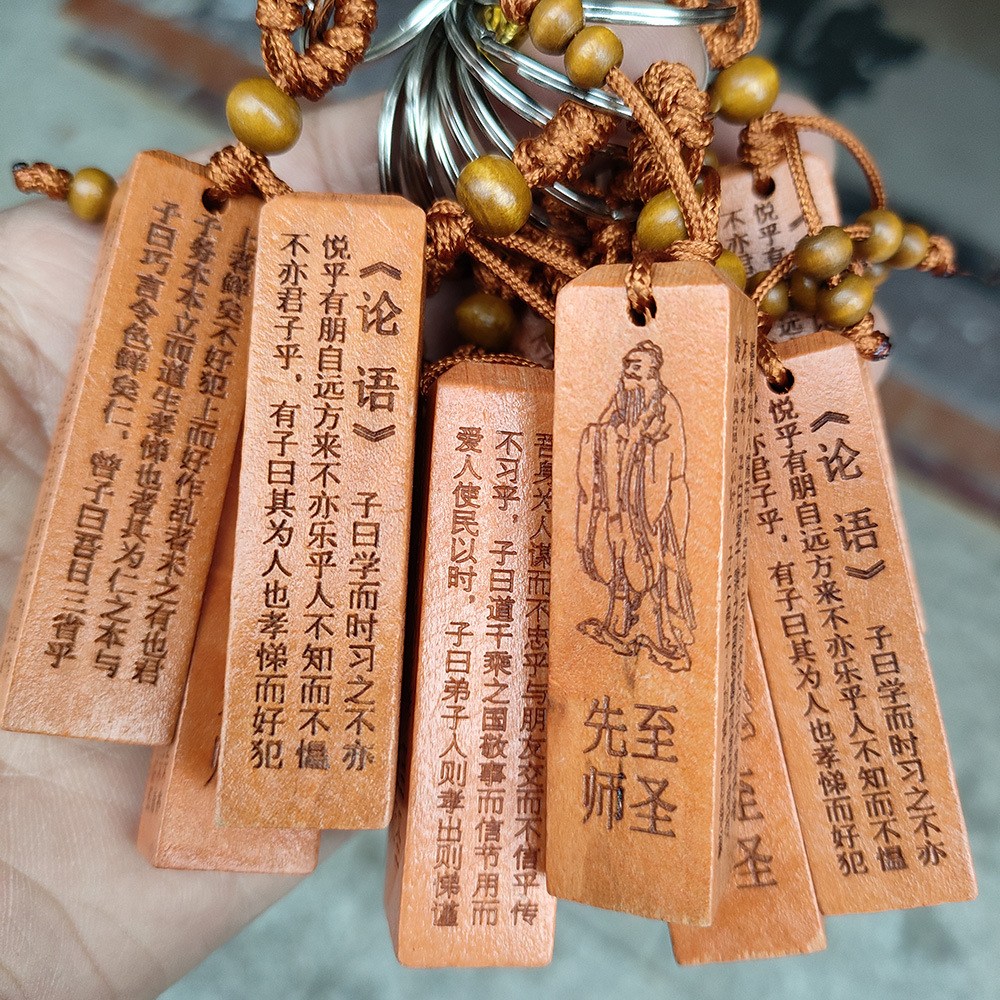 上者鲜矣不好犯上而好作乱者未之有也君
子务本本立而道生孝悌也者其为仁之本与
子曰巧言令色鲜矣仁，曾子曰吾日三省乎
《论语》 子曰学而时习之不亦
悦乎有朋自远方来不亦乐乎人不知而不愠
不亦君子乎，有子曰其为人也孝悌而好犯
吾身为人谋而不忠乎与朋友交而不信乎传
不习乎，子曰道千乘之国敬事而信节用而
爱人使民以时，子曰弟子入则孝出则悌谨
至圣
先师
至圣
《论语》 子曰学而时习之不亦
悦乎有朋自远方来不亦乐乎人不知而不愠
亦君子乎，有子曰其为人也孝悌而好犯
悦乎有
不亦君